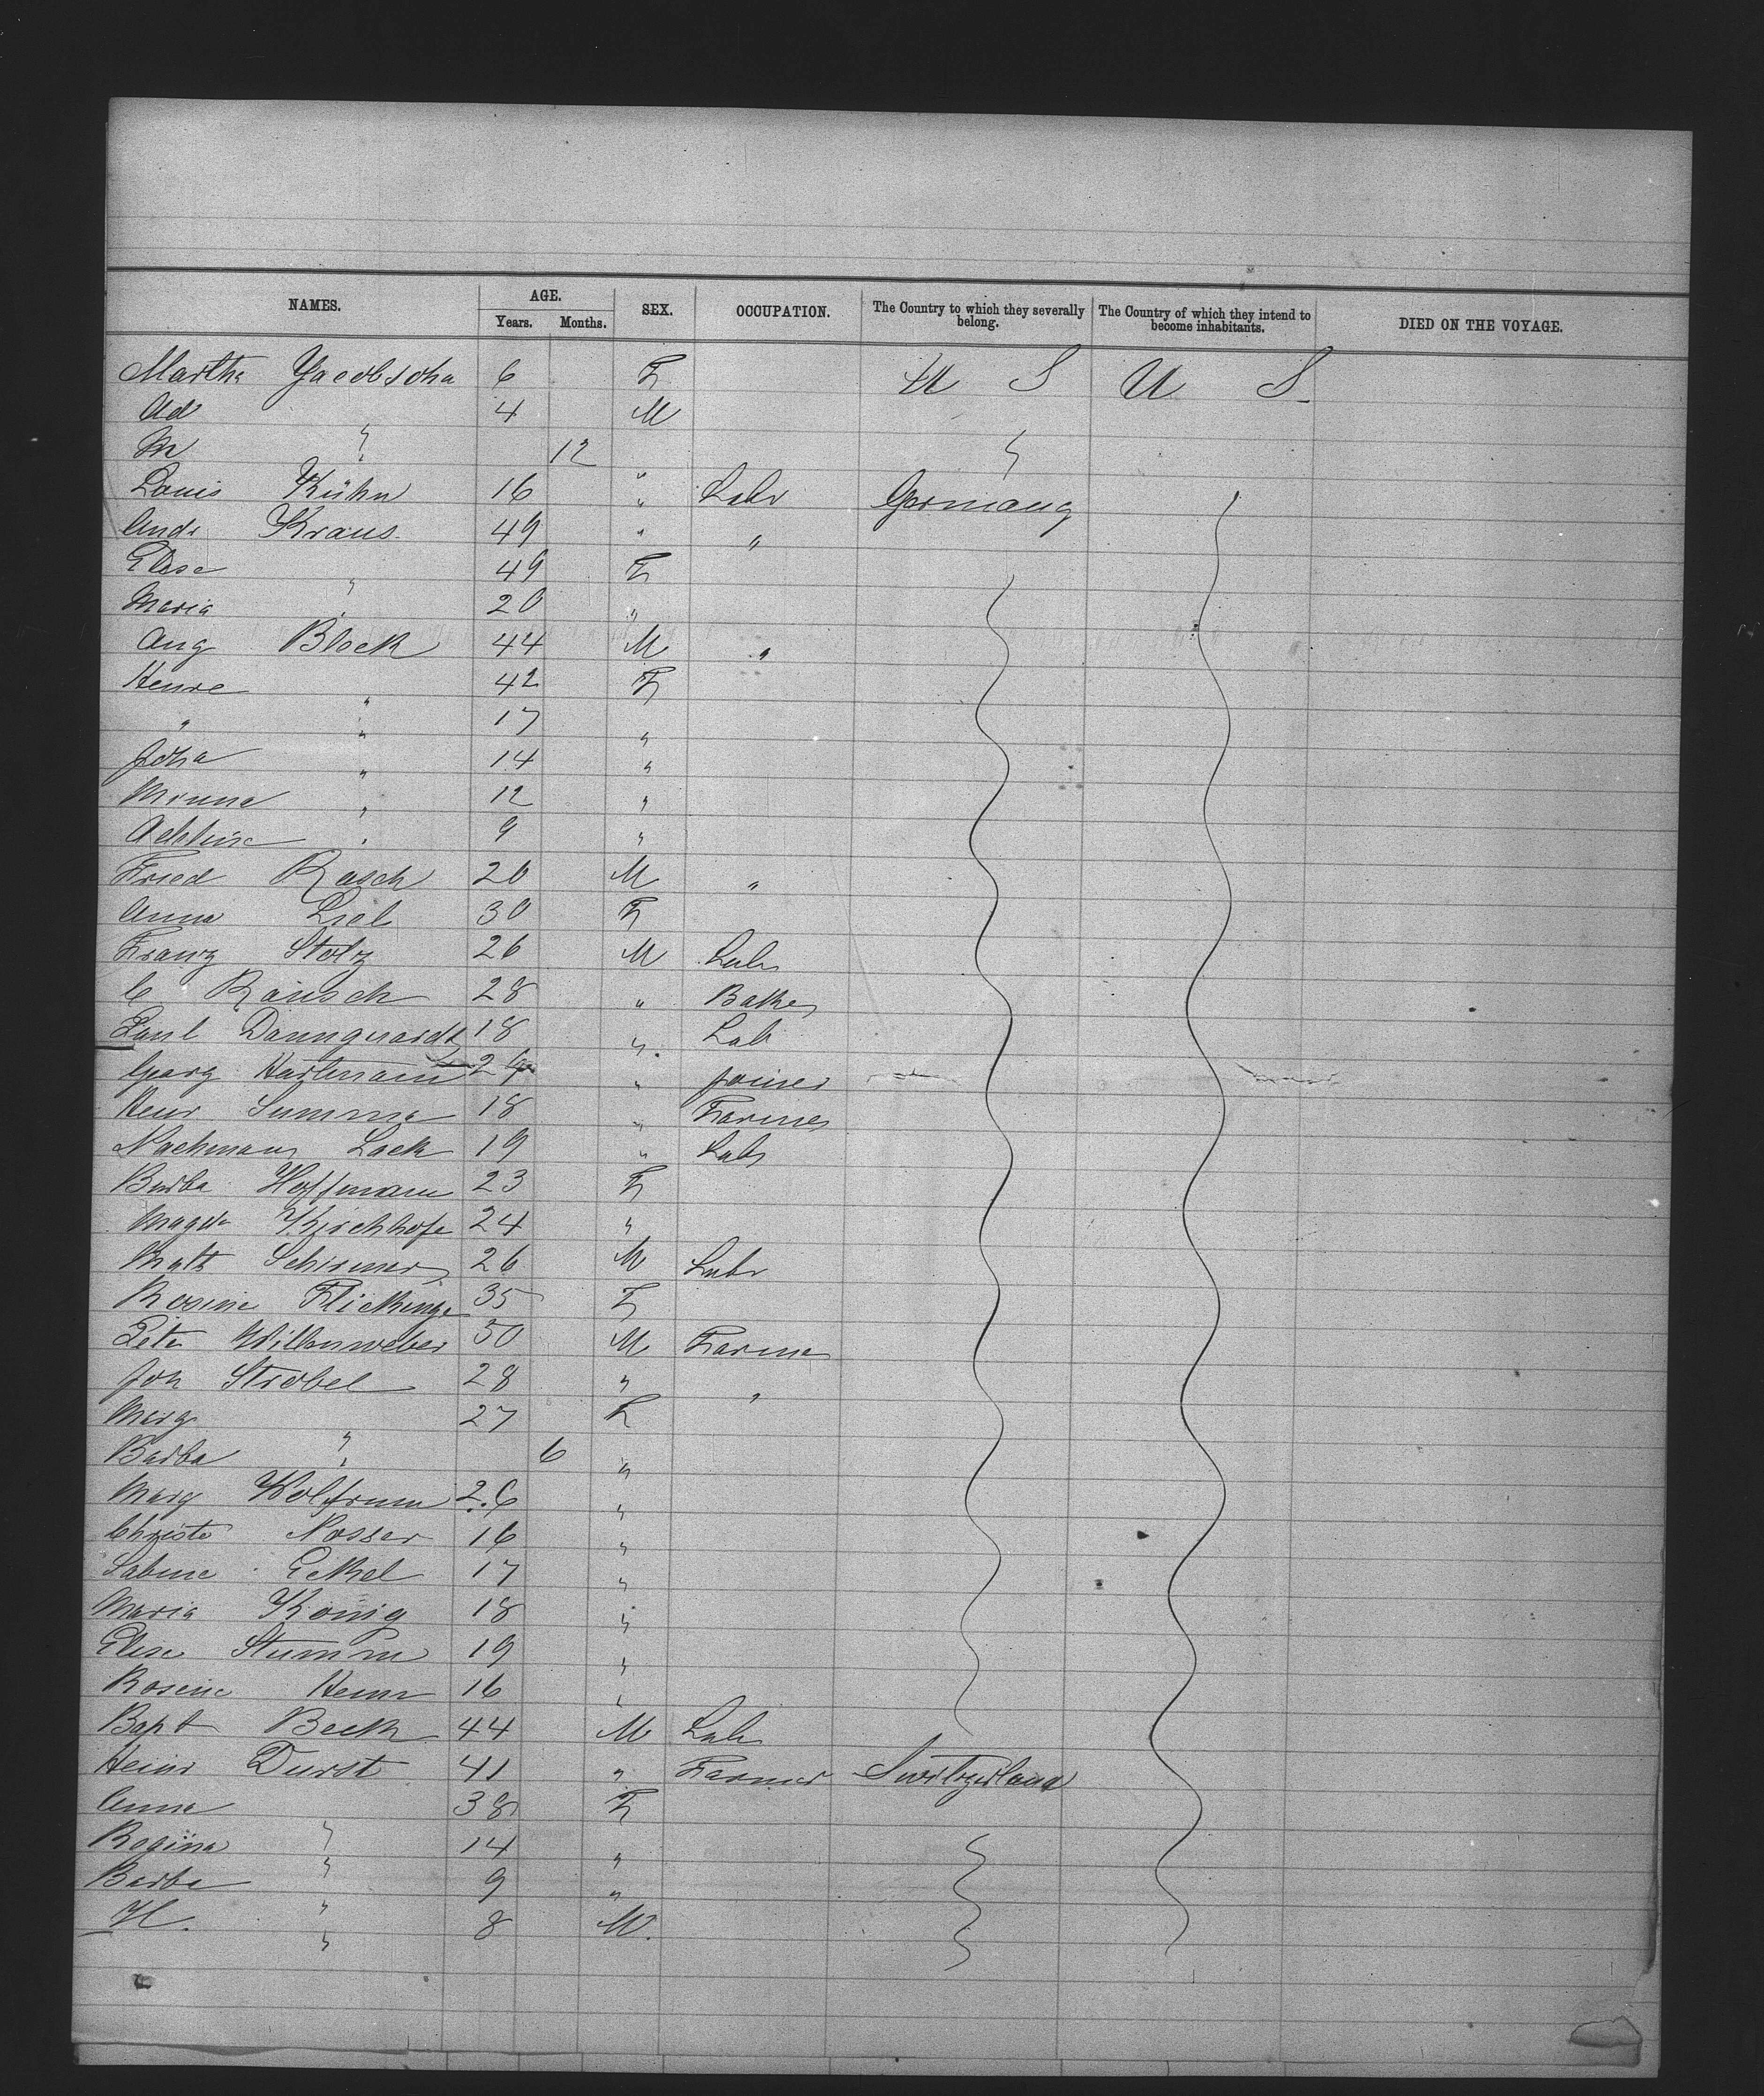 NAMES. AGE. SEX. OCCUPATION. The Country to which they severally belong. The Country of which they intend to become inhabitants. DIED ON THE VOYAGE.
Years. Months.
Martha 6 F U S U S
Ad " 4 M
M " 12 "
Louis Kühn 16 " Labr Germany
Andr Kraus 49 " "
Elise " 49 F
Maria " 20 "
Aug Block 44 M "
Henre " 42 F
" " 17 "
Joha " 14 "
Minna " 12 "
" 9 "
Fried Rasch 20 M "
Anna Lieb 30 F
Franz Stolz 26 M Labr
C Räusch 28 " Baker
Paul Dannguardt 18 " Lab
Georg Hartmann 24 " Joiner
Henr Summa 18 " Farmer
Nachmann Lack 19 " Labr
Barba Hoffmann 23 F
Magda Kirchhofe 24 "
Math Schirmer 26 M Labr
Rosine Flickinge 35 F
Pete Willenweber 50 M Farmer
Joh Strobel 28 " "
Marg " 27 F
Barba " 6 "
Marg Wolfrum 26 "
Christe Nosser 16 "
Sabine Eckel 17 "
Maria König 18 "
Elise Stumm 19 "
Rosine 16 "
Bapt Beck 44 M Labr
Heinr Durst 41 " Farmer Switzerland
Anna " 38 F
Regina " 14 "
Barba " 9 "
H. " 8 M.